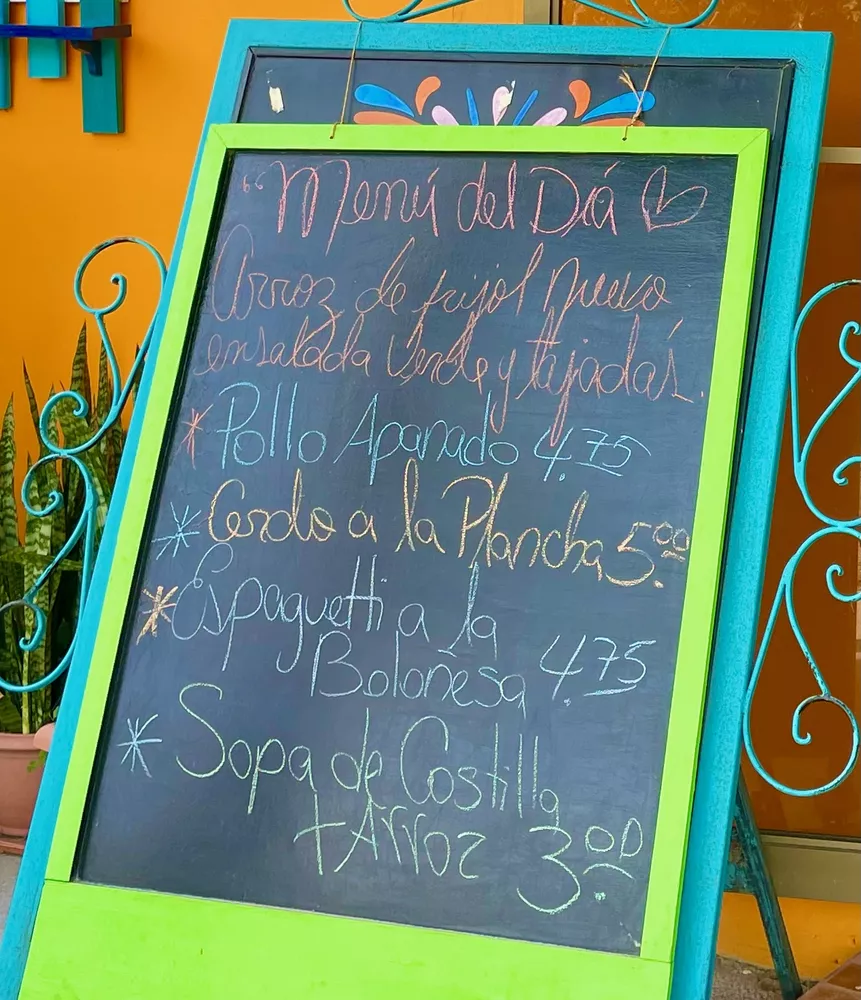 "Menú del Día
Arroz de frijol nuevo
ensalada Verde y tajadas.
* Pollo Apanado 4.75
* Cerdo a la Plancha 5.00
* Espaguetti a la
Boloñesa 4.75
* Sopa de Costilla
+ Arroz 3.00